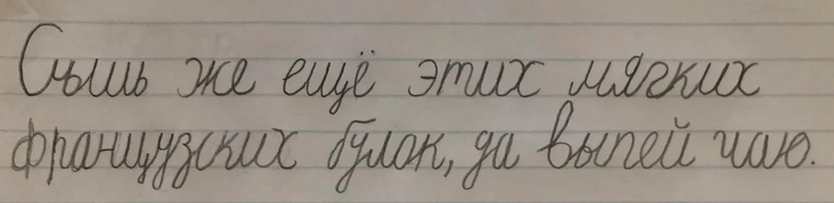 же ещё этих мягких
французских булок, да выпей чаю.